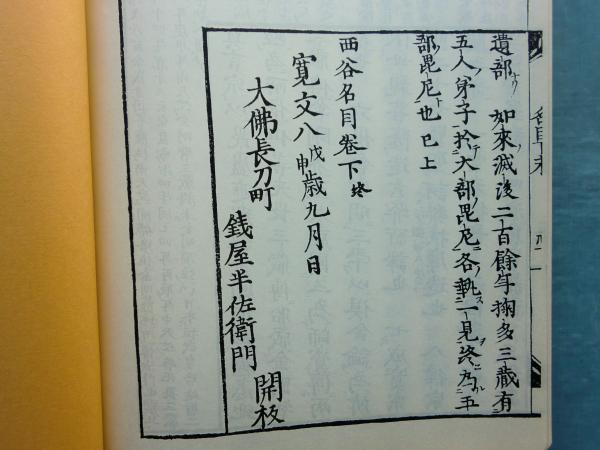 遺部 如來滅後二百餘年掬多三藏有
五人弟子於大部毘尼各執一見終為五
部毘尼也 已上
西谷名目卷下終
寛文八戊申歳九月日
大佛長刀町
銭屋半佐衛門 開板